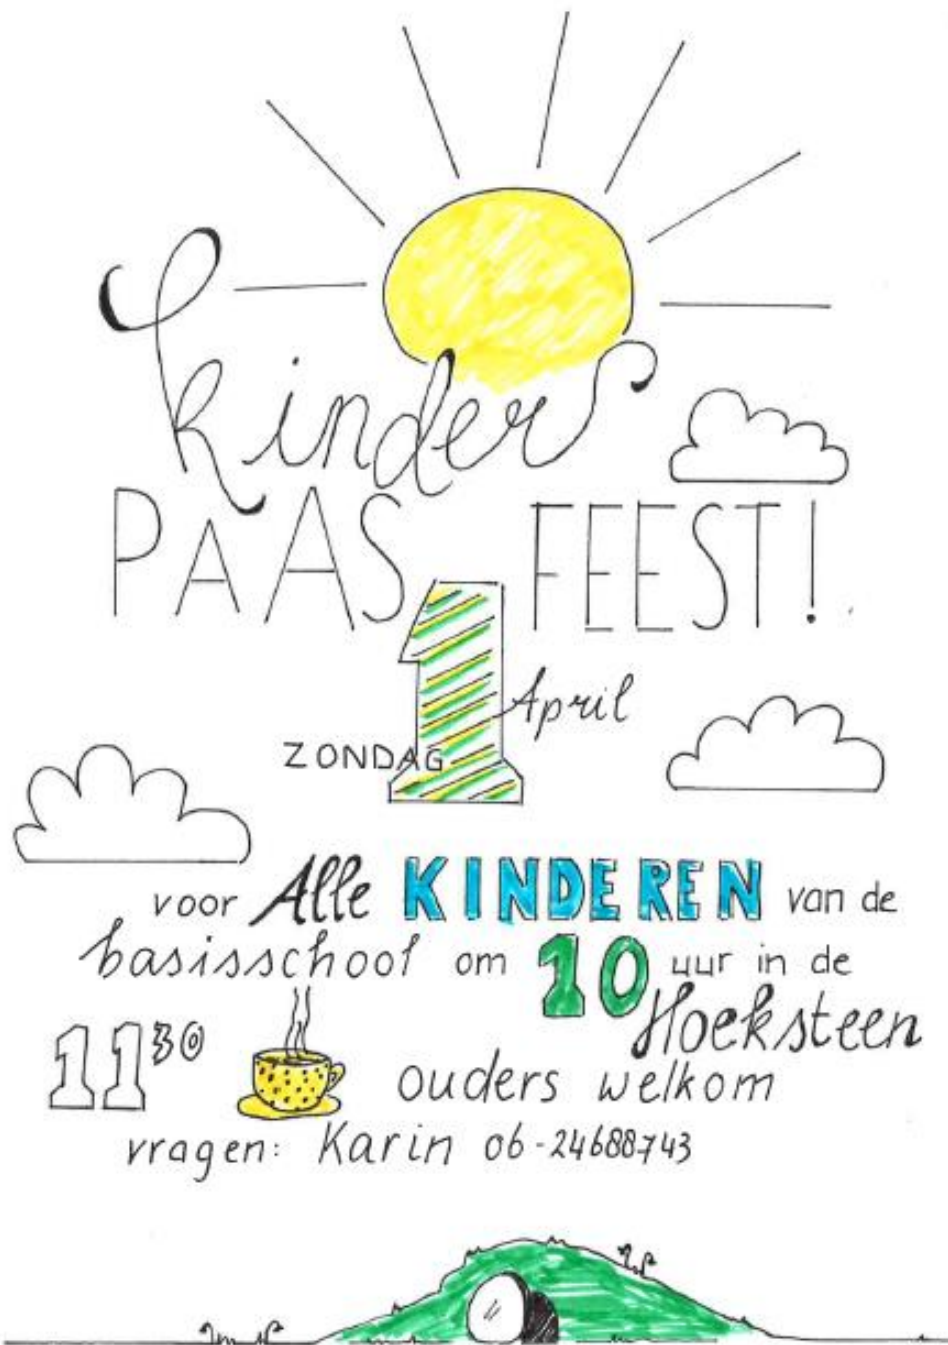 kinder
PAAS FEEST!
ZONDAG 1 April
voor Alle KINDEREN van de
basisschool om 10 uur in de
Hoeksteen
11³⁰ ouders welkom
vragen: Karin 06-24688743